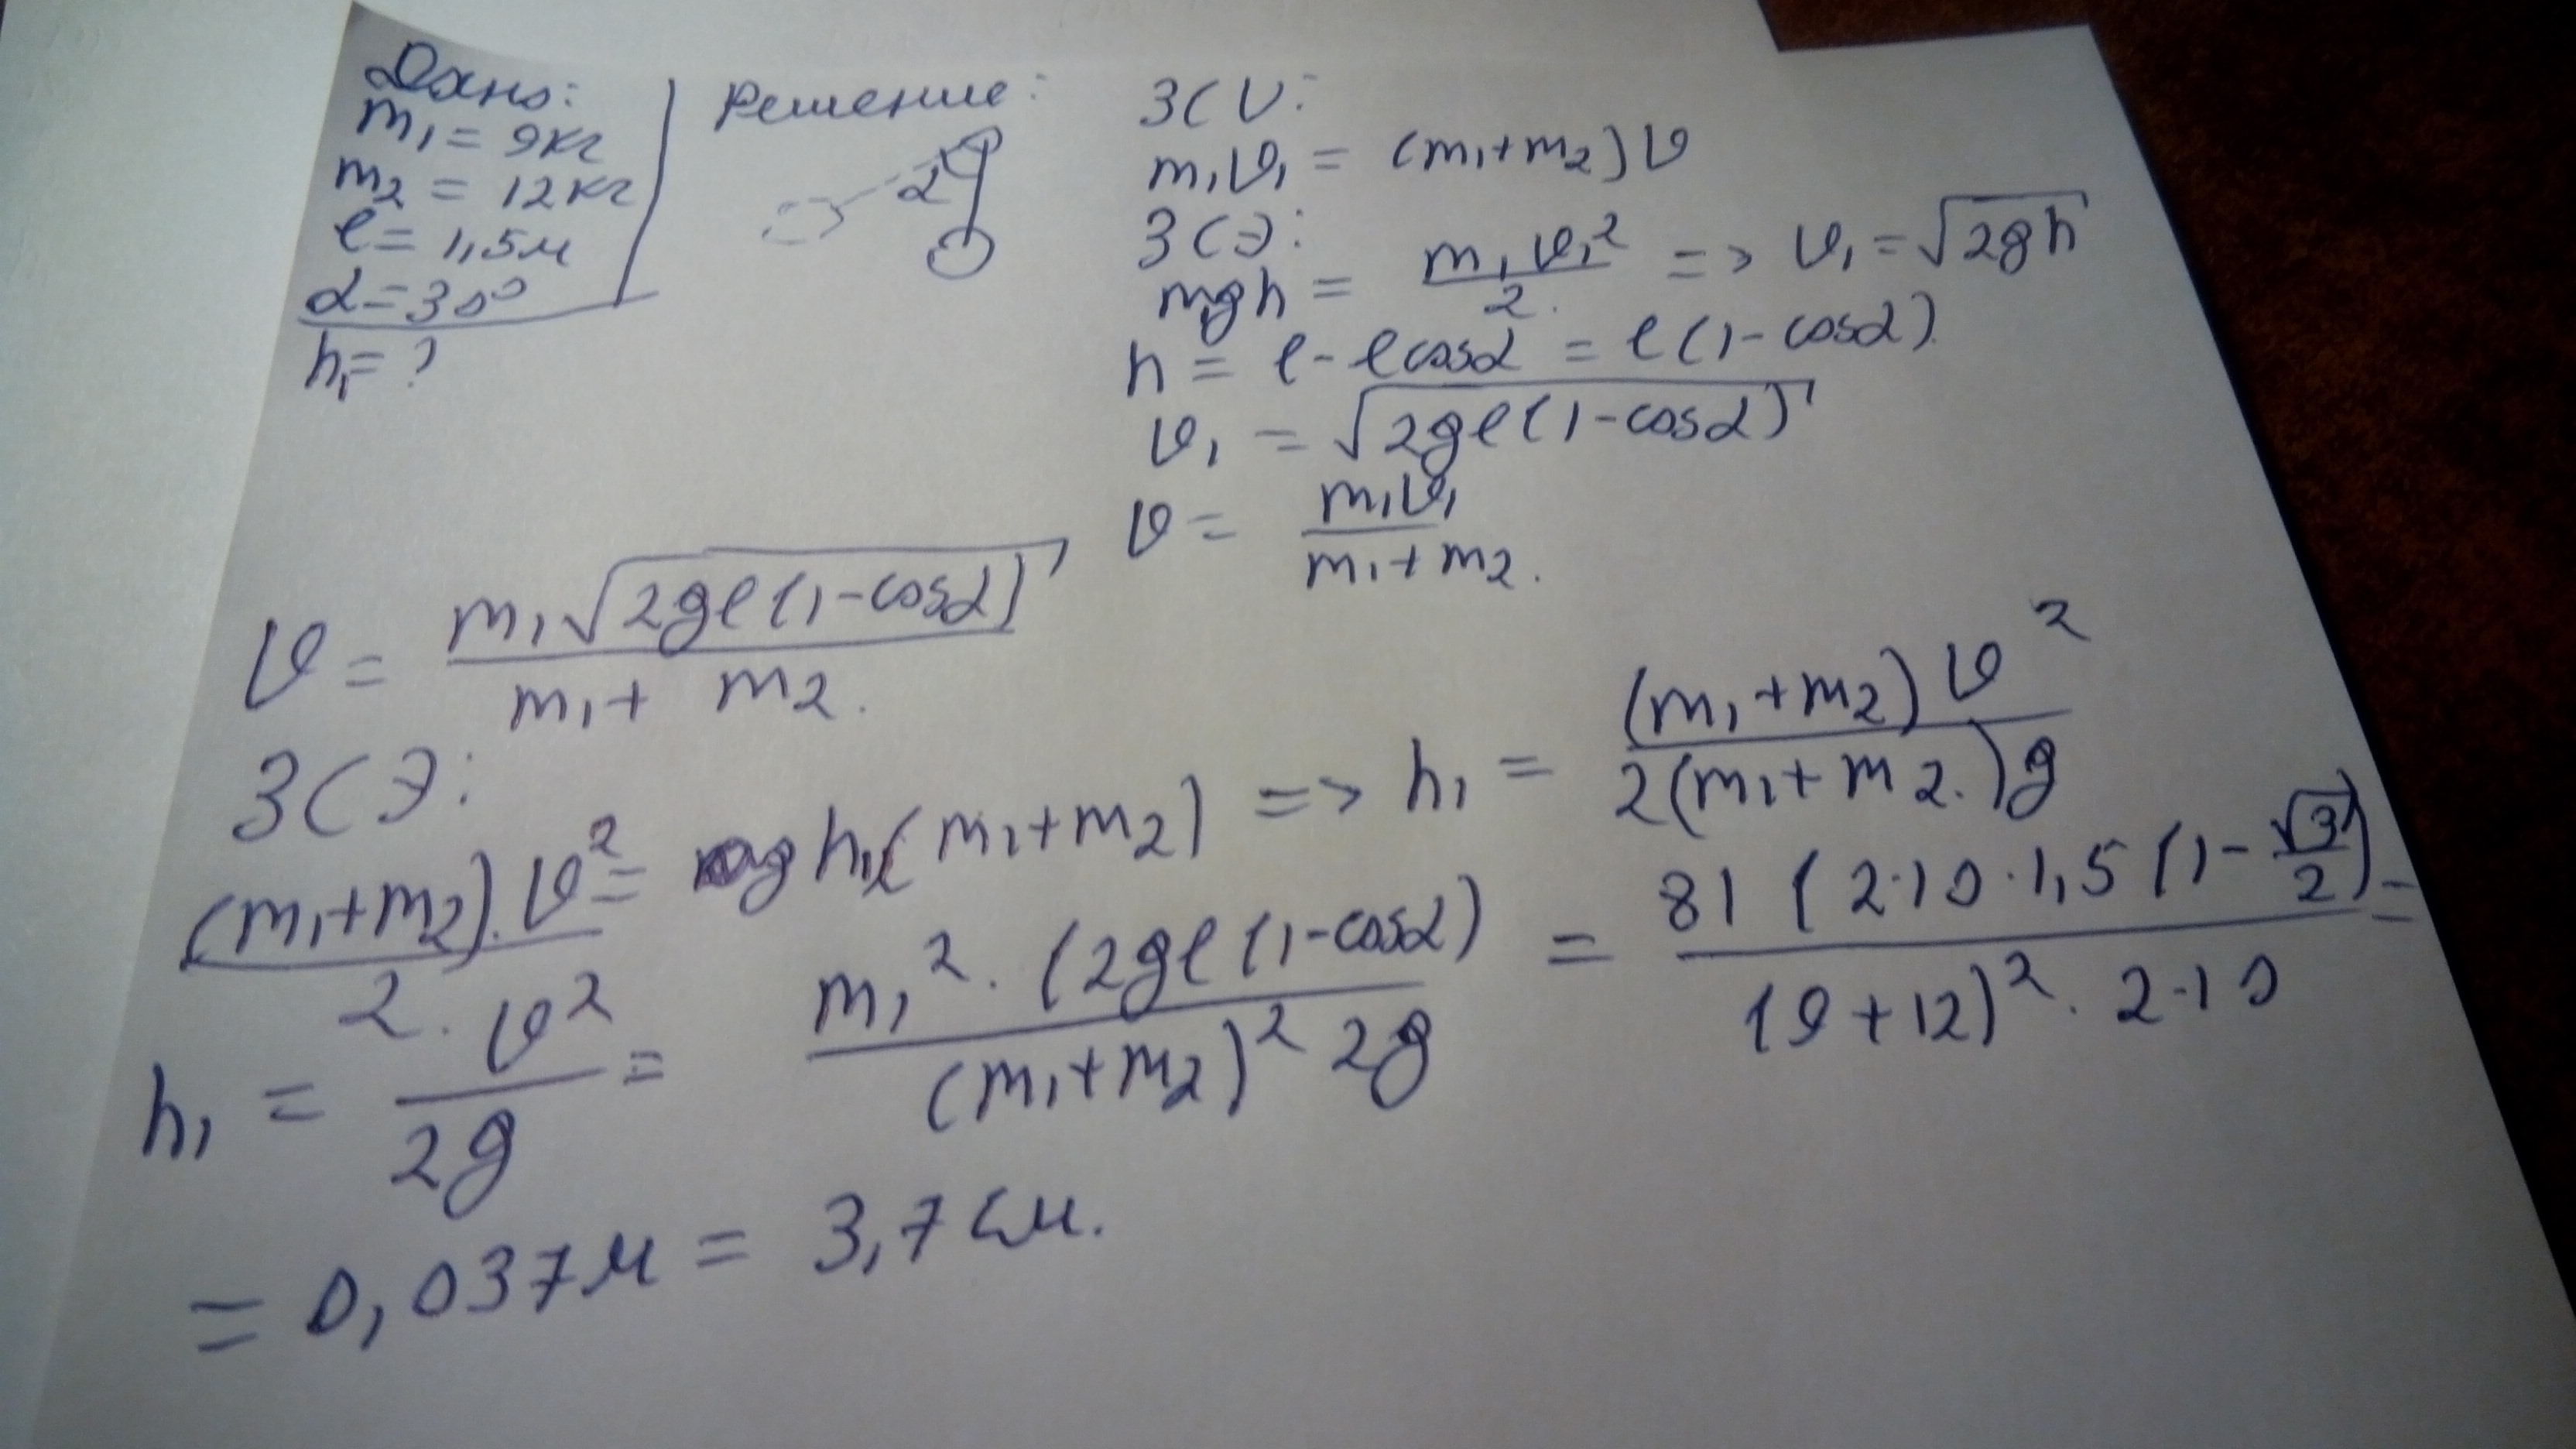 Дано:
m₁ = 9кг
m₂ = 12кг
l = 1,5м
α = 30°
h₁ = ?
Решение:
α
ЗСИ:
m₁υ₁ = (m₁+m₂)υ
ЗСЭ:
m₁gh = m₁υ₁²/2 => υ₁ = √(2gh)
h = l - lcosα = l(1-cosα).
υ₁ = √(2gl(1-cosα))
υ = m₁υ₁/(m₁+m₂).
υ = m₁√(2gl(1-cosα))/(m₁+m₂).
ЗСЭ:
(m₁+m₂)·υ²/2 = gh₁(m₁+m₂) => h₁ = (m₁+m₂)υ²/2(m₁+m₂)g
h₁ = υ²/2g = m₁²·(2gl(1-cosα)/(m₁+m₂)²2g = 81(2·10·1,5(1-√3/2)/(9+12)²·2·10 =
= 0,037м = 3,7см.